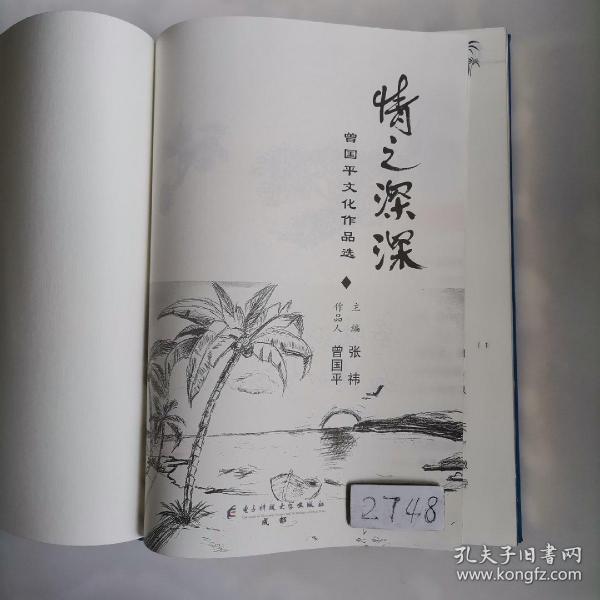 情之深深
曾国平文化作品选
主编 张祎
作品人 曾国平
电子科技大学出版社
成都
2748
孔夫子旧书网
www.kongfz.com